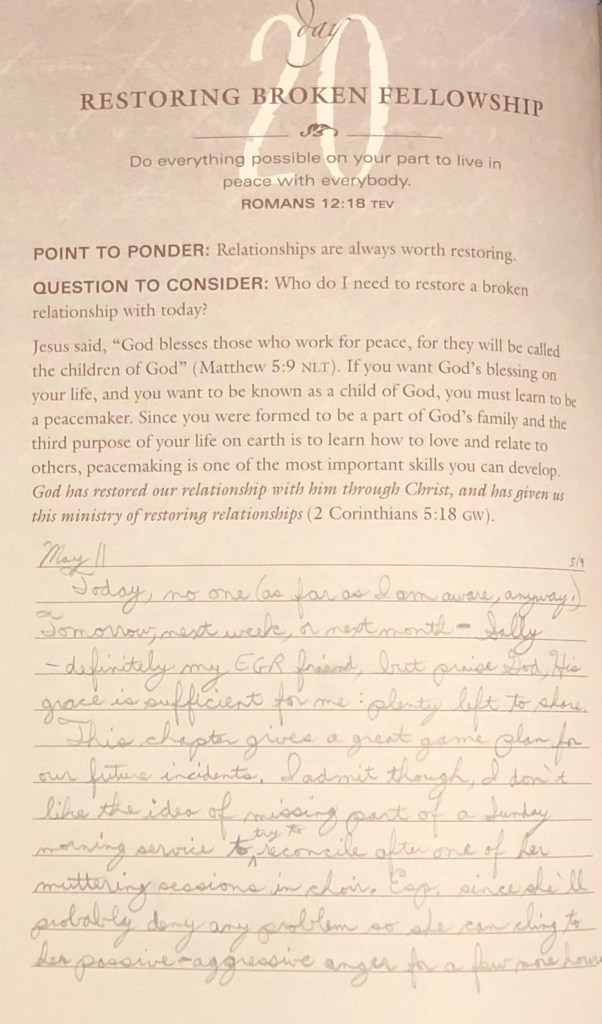 day
20
RESTORING BROKEN FELLOWSHIP
Do everything possible on your part to live in
peace with everybody.
ROMANS 12:18 TEV
POINT TO PONDER: Relationships are always worth restoring.
QUESTION TO CONSIDER: Who do I need to restore a broken
relationship with today?
Jesus said, “God blesses those who work for peace, for they will be called
the children of God” (Matthew 5:9 NLT). If you want God’s blessing on
your life, and you want to be known as a child of God, you must learn to be
a peacemaker. Since you were formed to be a part of God’s family and the
third purpose of your life on earth is to learn how to love and relate to
others, peacemaking is one of the most important skills you can develop.
God has restored our relationship with him through Christ, and has given us
this ministry of restoring relationships (2 Corinthians 5:18 GW).
May 11
5/9
Today, no one (as far as I am aware, anyway.)
Tomorrow, next week, or next month - Sally
- definitely my EGR friend, but praise God, His
grace is sufficient for me : plenty left to share.
This chapter gives a great game plan for
our future incidents. I admit though, I don't
like the idea of missing part of a Sunday
morning service to try to reconcile after one of her
muttering sessions in choir. Esp. since she'll
probably deny any problem so she can cling to
her passive-aggressive anger for a few more hours